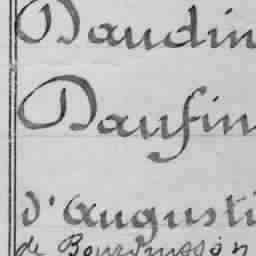 Daudin
Daufin
d'Augusti
de Bourdusson